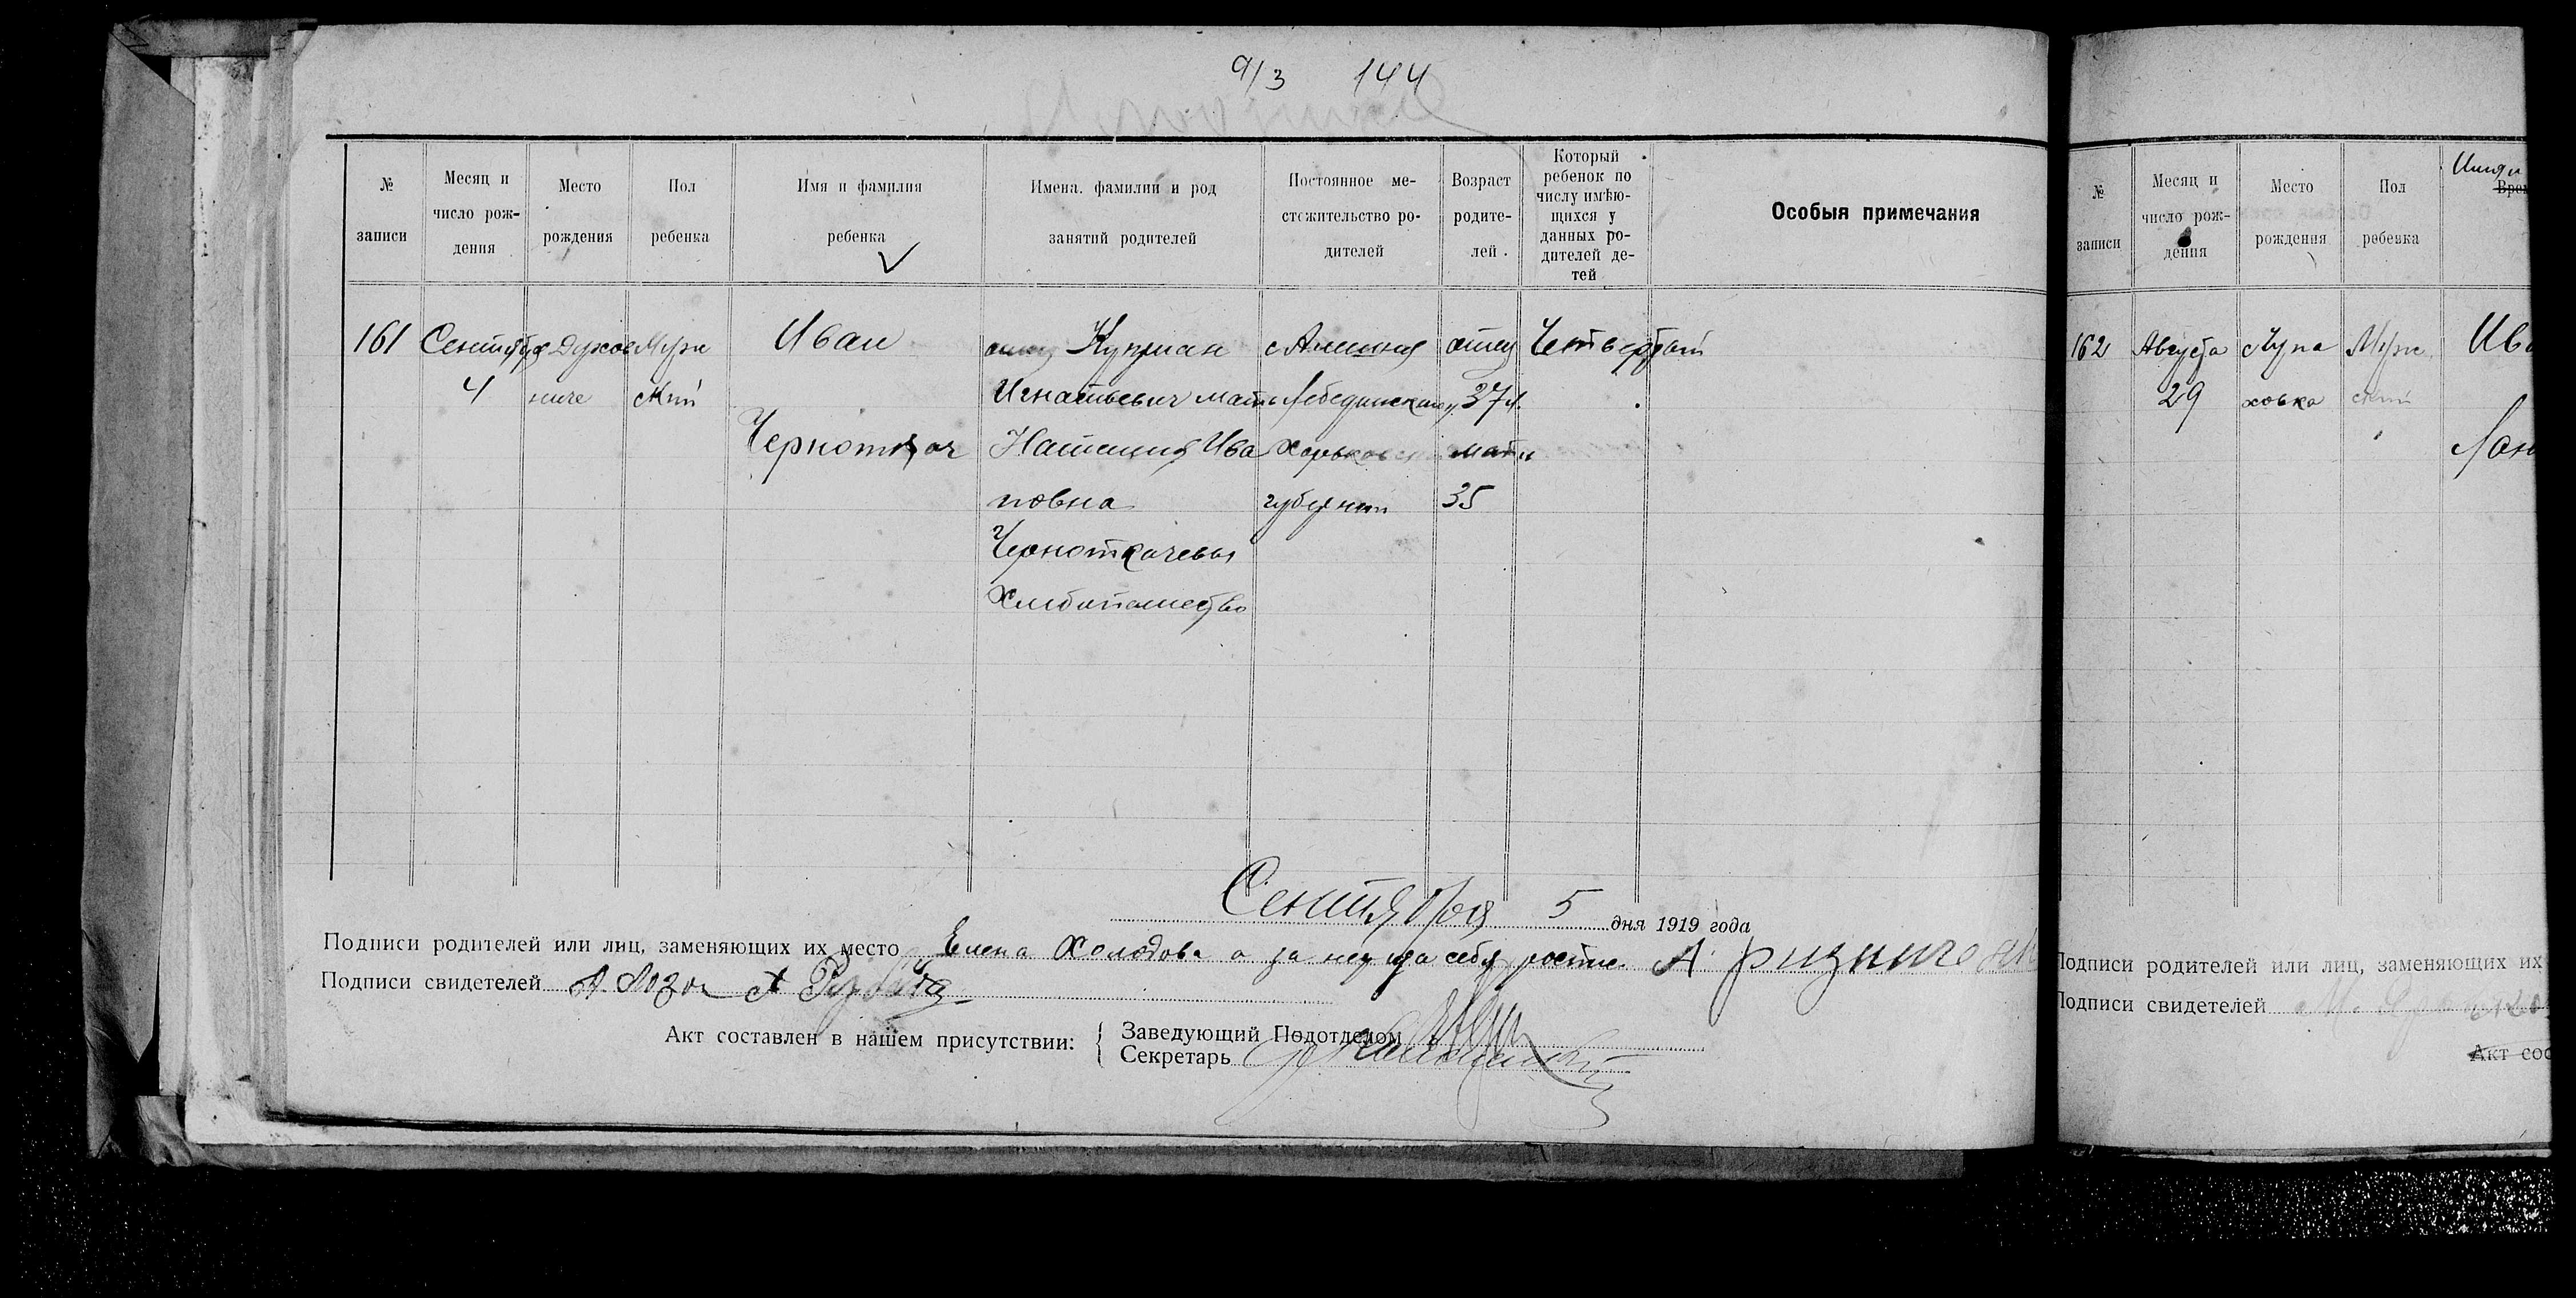 9/3 144
№ записи
Месяц и число рож-дения
Место рождения
Пол ребенка
Имя и фамилия ребенка
Имена. фамилии и род занятий родителей
Постоянное ме-стожительство ро-дителей
Возраст родите-лей.
Который ребенок по числу имѣю-щихся у данных ро-дителей де-тей
Особыя примечания
161
Сентября
4
Духов
ниче
Муж
ской
Иван
Черноткач
отец Куприан
Игнатьевич мать
Наталия Ива
новна
Черноткачевы
Хлебопашество
с Алешня
Лебединскаго у.
Харьковской
губернии
отец
37 л.
мать
35
Четвертый
Сентября 5 дня 1919 года
Подписи родителей или лиц, заменяющих их место Елена Холодова а за нея и за себя роспис А
Подписи свидетелей
Акт составлен в нашем присутствии:
Заведующий Подотделом
Секретарь
№ записи
Месяц и число рож-дения
Место рождения
Пол ребенка
Имя и
Врем
162
Августа
29
Лупа
ховка
Муж
ской
Ива
Подписи родителей или лиц, заменяющих их
Подписи свидетелей
Акт сос